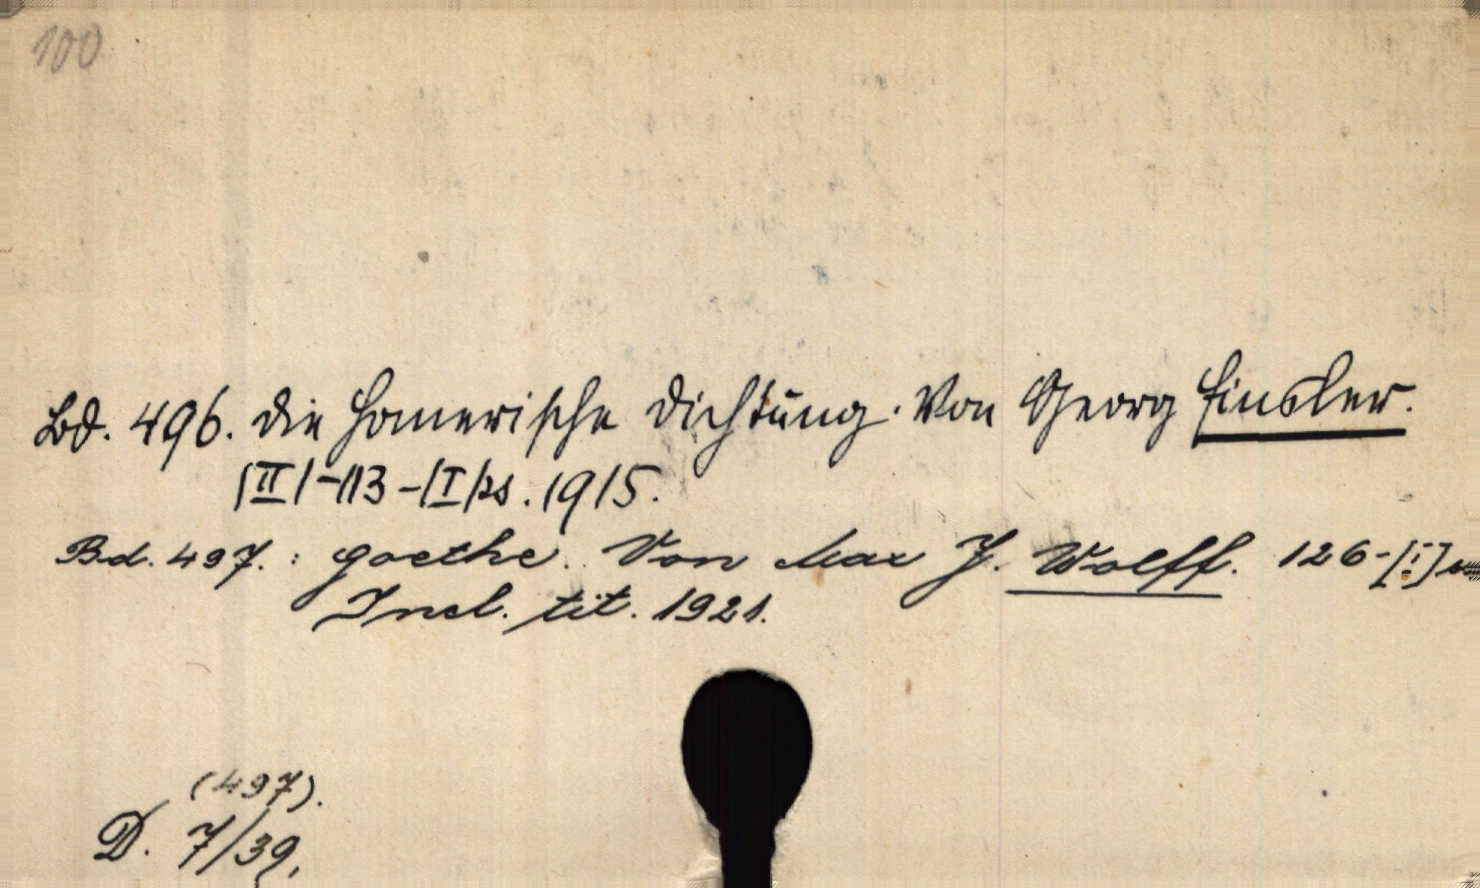 100
Bd. 496. Die Homerische Dichtung. Von Georg Finsler.
[II]-113-[I] ks. 1915.
Bd. 497. : Goethe. Von Max J. Wolff. 126-[I]
Incl. tit. 1921.
(497).
D. 7/39.